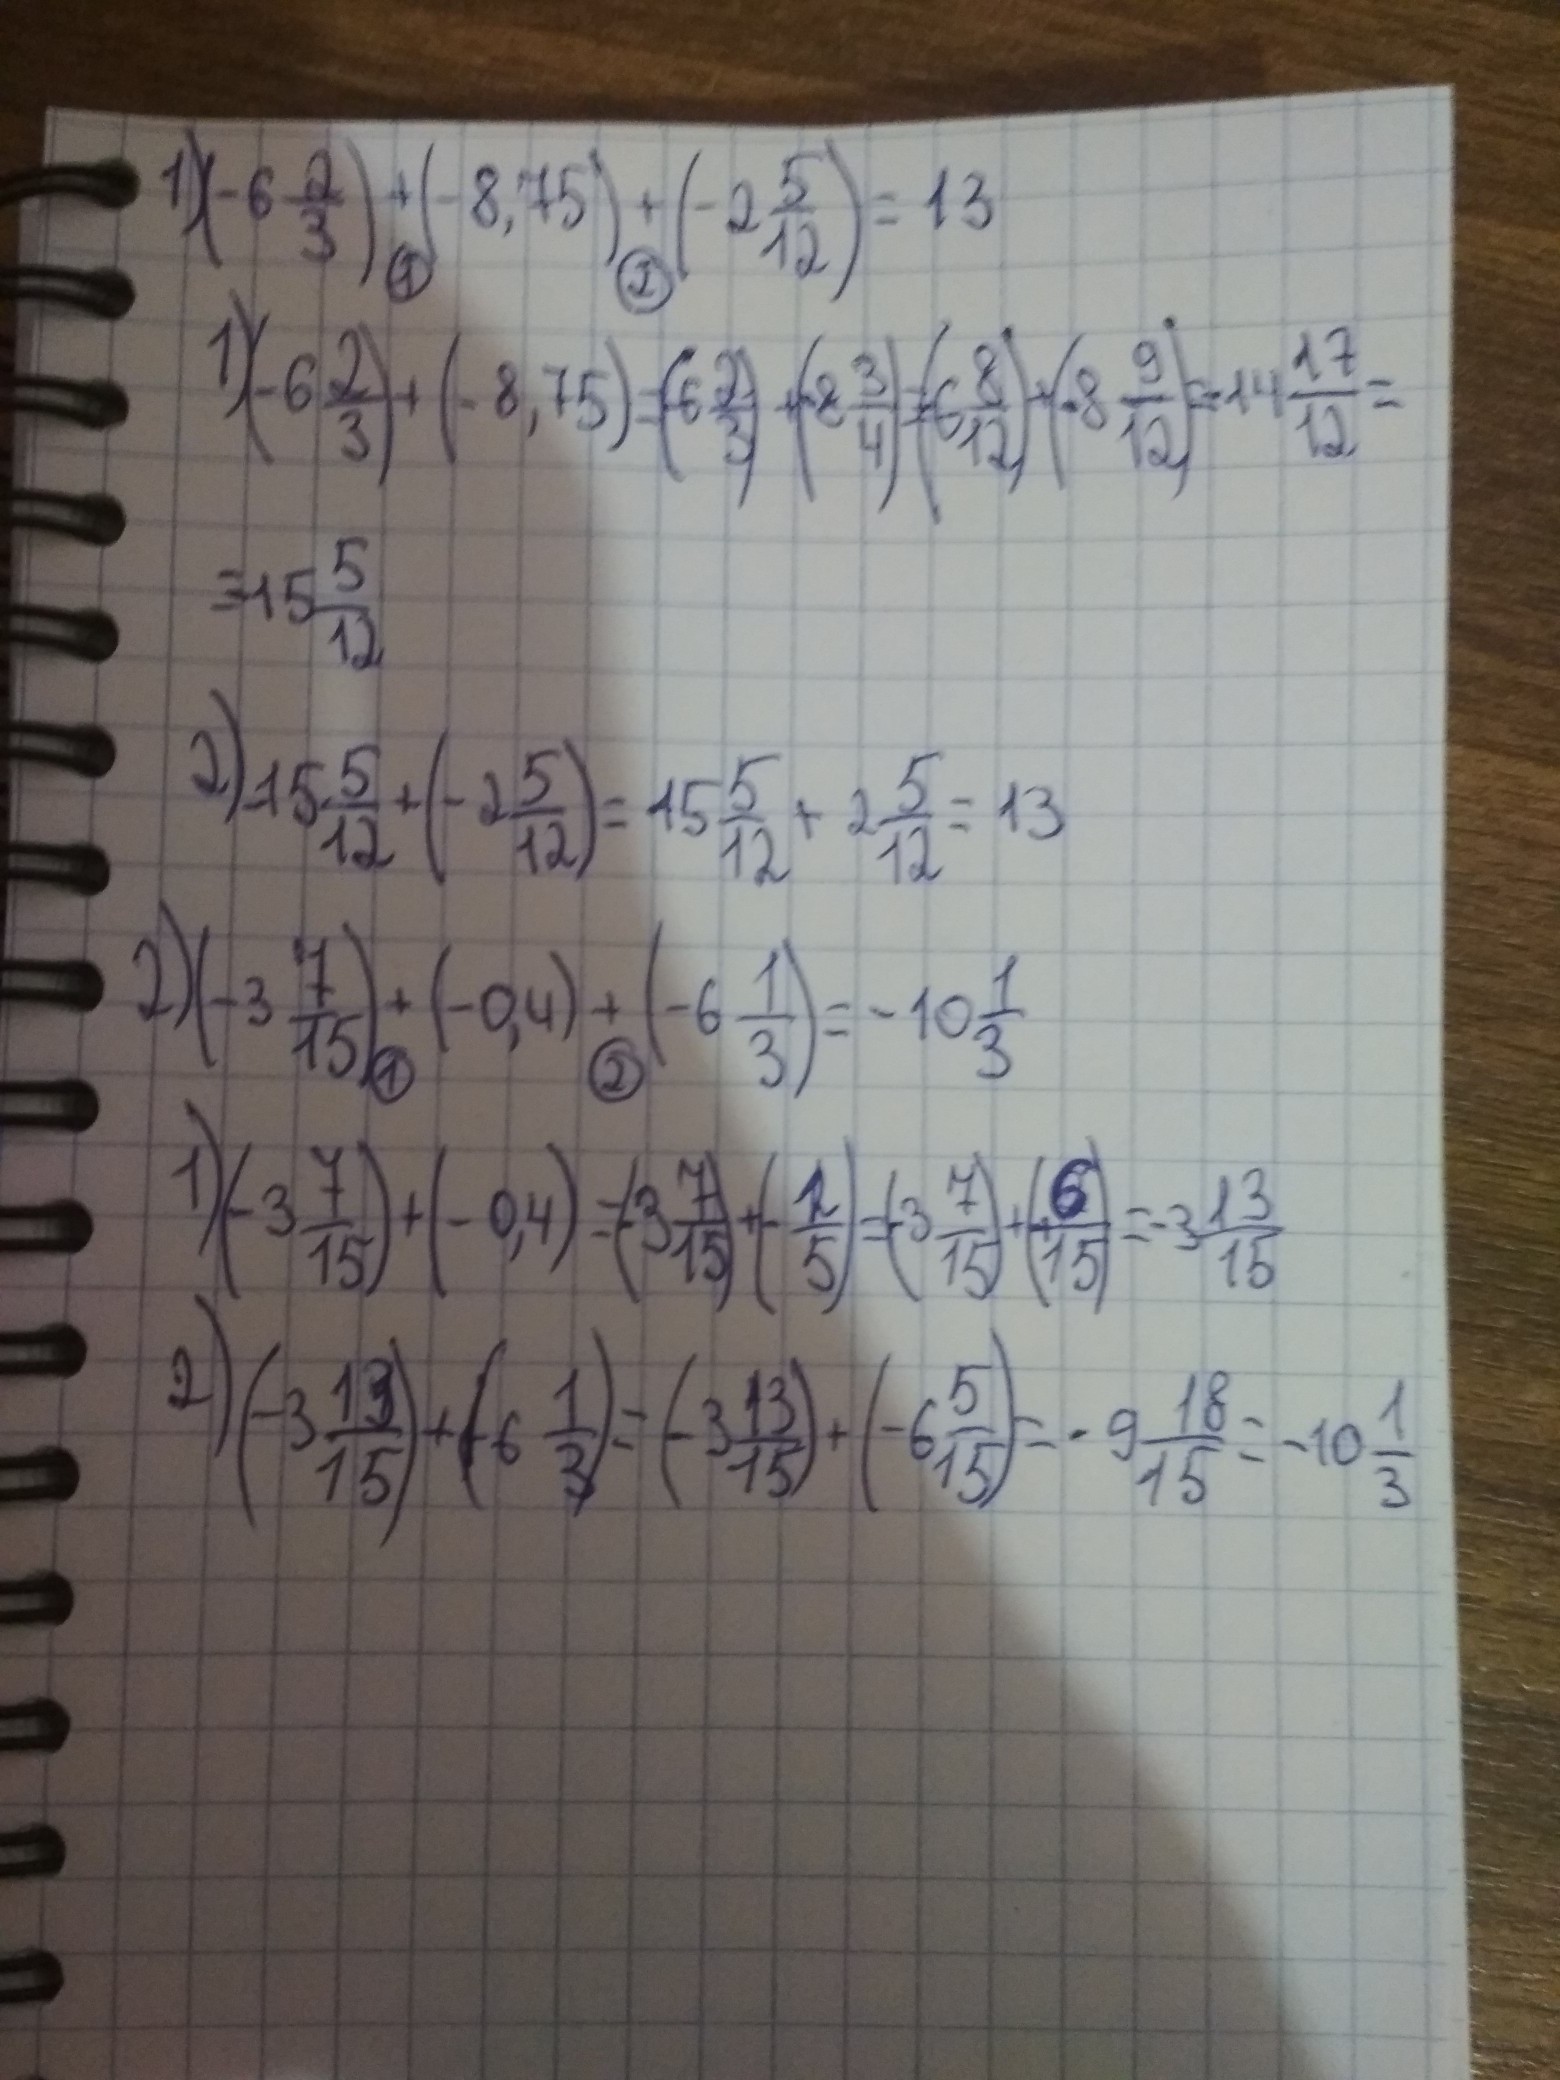 1) (-6 2/3) + (-8,75) + (-2 5/12) = 13
① ②
1) (-6 2/3) + (-8,75) = (-6 2/3) + (-8 3/4) = (-6 8/12) + (-8 9/12) = -14 17/12 =
= -15 5/12
2) -15 5/12 + (-2 5/12) = 15 5/12 + 2 5/12 = 13
2) (-3 7/15) + (-0,4) + (-6 1/3) = -10 1/3
① ②
1) (-3 7/15) + (-0,4) = (-3 7/15) + (- 2/5) = (-3 7/15) + (- 6/15) = -3 13/15
2) (-3 13/15) + (-6 1/3) = (-3 13/15) + (-6 5/15) = -9 18/15 = -10 1/3